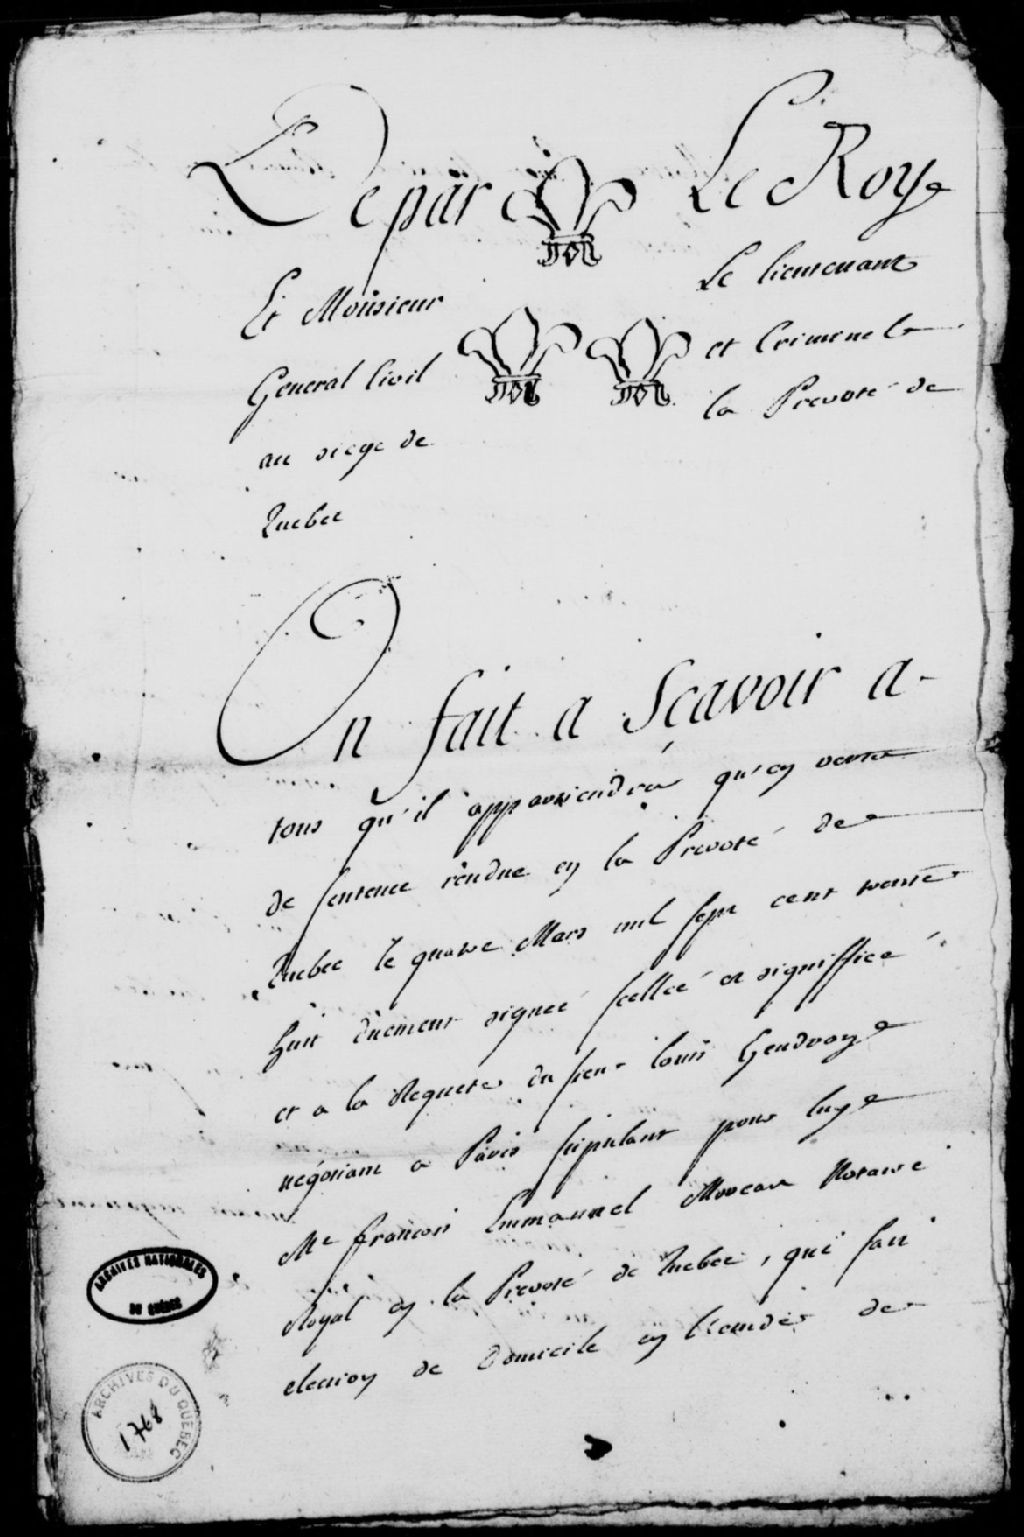 De par Le Roy
Et Monsieur Le lieutenant
General Civil et Criminel
au siege de la Prevoté de
Quebec
On fait a Sçavoir a
tous qu'il appartiendra qu'en vertu
de sentence rendue en la Prevoté de
Quebec le quatre Mars mil sept cent trente
huit düement signée scellée et signiffiée
et a la Requete du sieur Louis Gendron
négotiant a Paris stipulant pour luy
Me francois Emmanuel Moreau Notaire
Royal en la Prevoté de Quebec, qui fait
election de Domicile en l'etude de
ARCHIVES NATIONALES
DU QUÉBEC
ARCHIVES DU QUÉBEC
1768